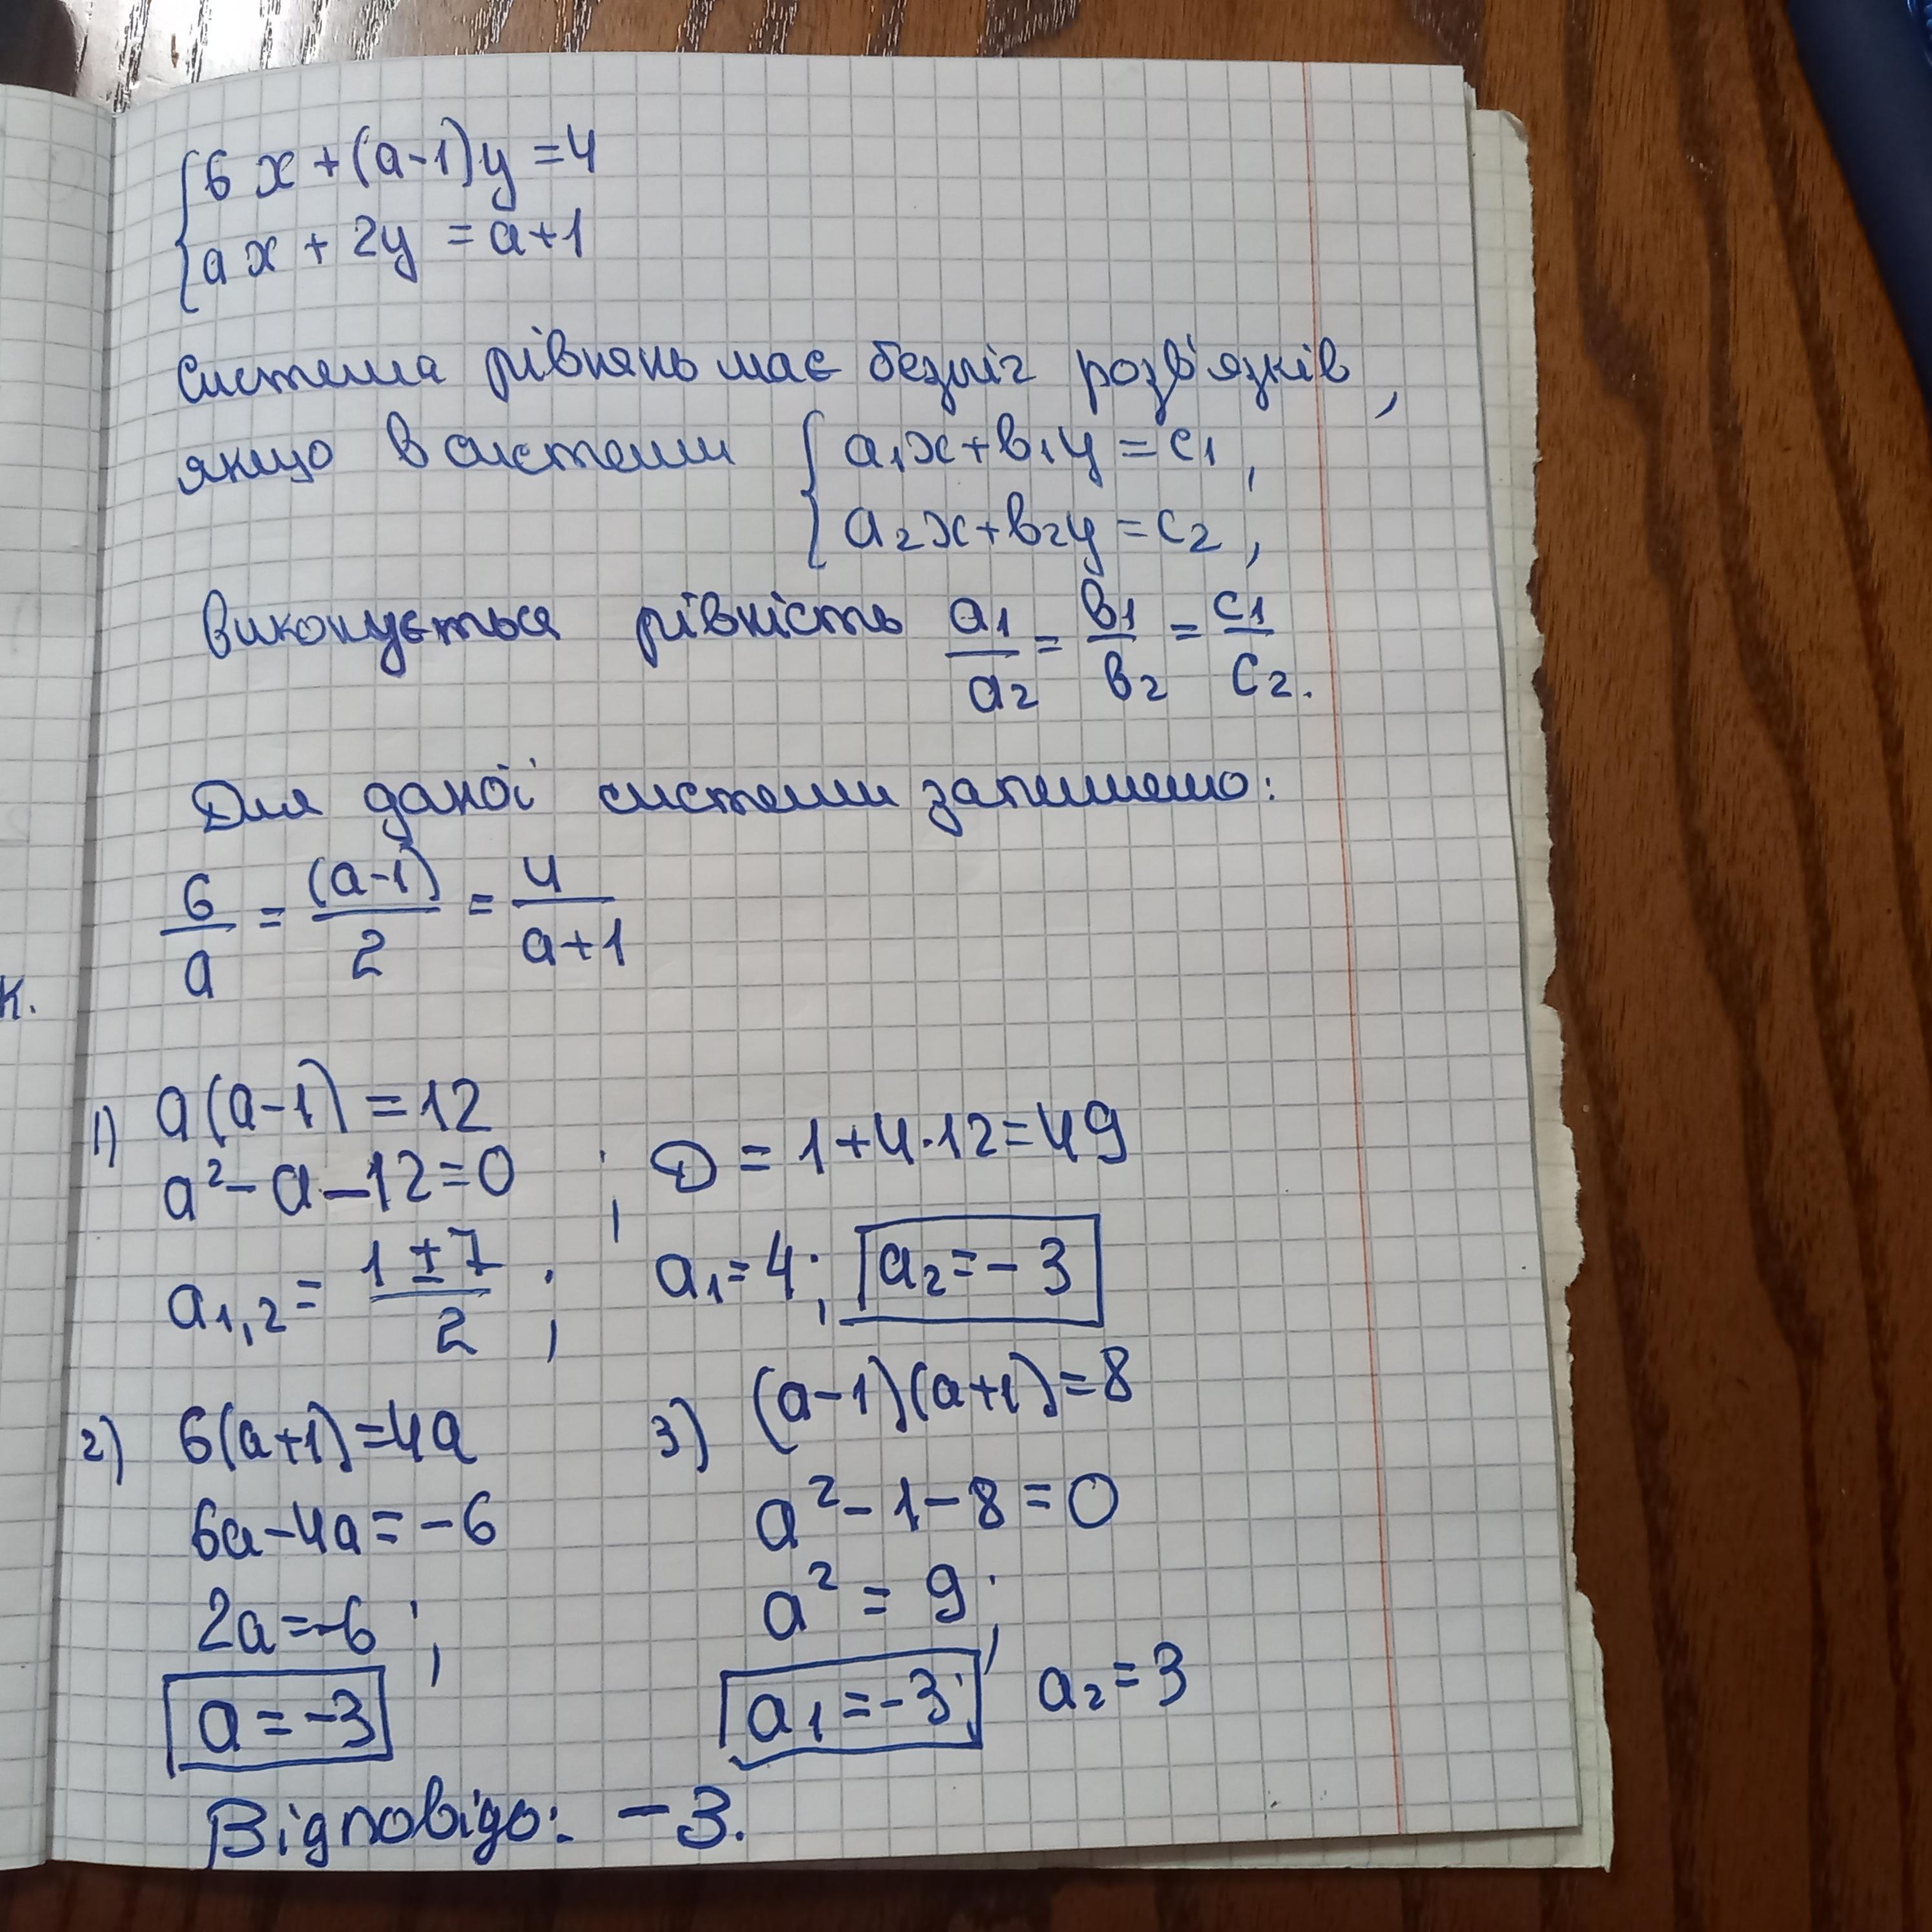 {6x + (a-1)y = 4
{ax + 2y = a+1
Система рівнянь має безліч розв'язків,
якщо в системи {a₁x+b₁y = c₁,
{a₂x+b₂y = c₂,
виконується рівність a₁/a₂ = b₁/b₂ = c₁/c₂.
Для даної системи запишемо:
6/a = (a-1)/2 = 4/(a+1)
к.
1) a(a-1) = 12
a² - a - 12 = 0 ; D = 1+4·12=49
a₁,₂ = (1 ± 7)/2 ; a₁=4; a₂=-3
2) 6(a+1)=4a
6a-4a=-6
2a=-6 ;
a=-3
3) (a-1)(a+1)=8
a²-1-8=0
a² = 9;
a₁=-3; a₂=3
Відповідь: -3.